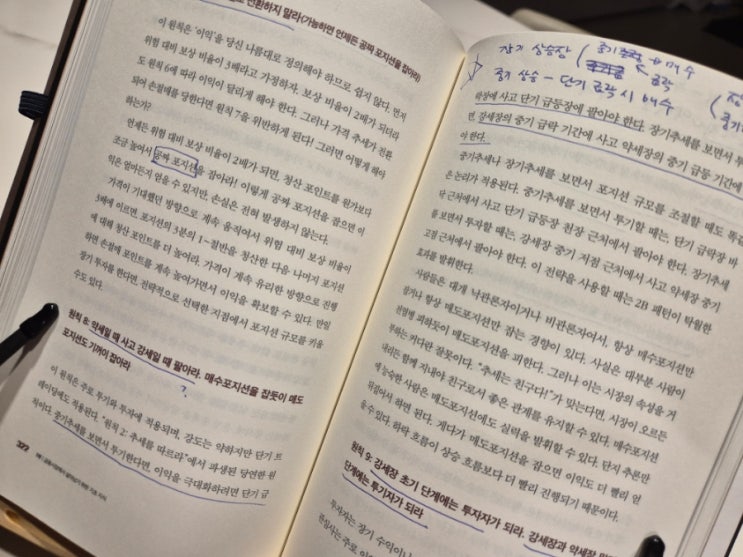 전환하지 말라(가능하면 언제든 공짜 포지션을 잡아라)
이 원칙은 '이익'을 당신 나름대로 정의해야 하므로 쉽지 않다. 먼저
위험 대비 보상 비율이 3배라고 가정하자. 보상 비율이 2배가 되더라
도 원칙 6에 따라 이익이 달리게 해야 한다. 그러나 가격 추세가 전환
되어 손절매를 당한다면 원칙 7을 위반하게 된다! 그러면 어떻게 해야
하는가?
언제든 위험 대비 보상 비율이 2배가 되면, 청산 포인트를 원가보다
조금 높여서 공짜 포지션을 잡아라! 이렇게 공짜 포지션을 잡으면 이
익은 얼마든지 얻을 수 있지만, 손실은 전혀 발생하지 않는다.
가격이 기대했던 방향으로 계속 움직여서 위험 대비 보상 비율이
3배에 이르면, 포지션의 3분의 1~절반을 청산한 다음 나머지 포지션
에 대해 청산 포인트를 더 높여라. 가격이 계속 유리한 방향으로 진행
하면 손절매 포인트를 계속 높여가면서 이익을 확보할 수 있다. 만일
장기 투자를 한다면, 전략적으로 선택한 지점에서 포지션 규모를 키울
수도 있다.
원칙 8: 약세일 때 사고 강세일 때 팔아라. 매수포지션을 잡듯이 매도
포지션도 기꺼이 잡아라
?
이 원칙은 주로 투기와 투자에 적용되며, 강도는 약하지만 단기 트
레이딩에도 적용된다. "원칙 2: 추세를 따르라"에서 파생된 당연한 원
칙이다. 중기추세를 보면서 투기한다면, 이익을 극대화하려면 단기 급
322
장기 상승장
중기 급락 매수
급락
중기 상승 - 단기 급락 시 매수
락장에 사고 단기 급등장에 팔아야 한다. 장기추세를 보면서 투
면 강세장의 중기 급락 기간에 사고 약세장의 중기 급등 기간에
아야 한다.
중기추세나 장기추세를 보면서 포지션 규모를 조절할 때도 똑같
은 논리가 적용된다. 중기추세를 보면서 투기할 때는, 단기 급락장 바
닥 근처에서 사고 단기 급등장 천장 근처에서 팔아야 한다. 장기추세
를 보면서 투자할 때는, 강세장 중기 저점 근처에서 사고 약세장 중기
고점 근처에서 팔아야 한다. 이 전략을 사용할 때는 2B 패턴이 탁월한
효과를 발휘한다.
사람들은 대개 낙관론자이거나 비관론자여서, 항상 매수포지션만
잡거나 항상 매도포지션만 잡는 경향이 있다. 사실은 대부분 사람이
전염병 피하듯이 매도포지션을 피한다. 그러나 이는 시장의 속성을 거
부하는 커다란 잘못이다. "추세는 친구다!"가 맞는다면, 시장이 오르든
내리든 함께 지내야 친구로서 좋은 관계를 유지할 수 있다. 매수포지션
에 능숙한 사람은 매도포지션에도 실력을 발휘할 수 있다. 단지 추론만
뒤집어서 하면 된다. 게다가 매도포지션을 잡으면 이익도 더 빨리 얻
을 수 있다. 하락 흐름이 상승 흐름보다 더 빨리 진행되기 때문이다.
원칙 9: 강세장 초기 단계에는 투자자가 되라. 강세장과 약세장
단계에는 투기자가 되라
투자자는 장기 수익이나
관심사는 주로 이익